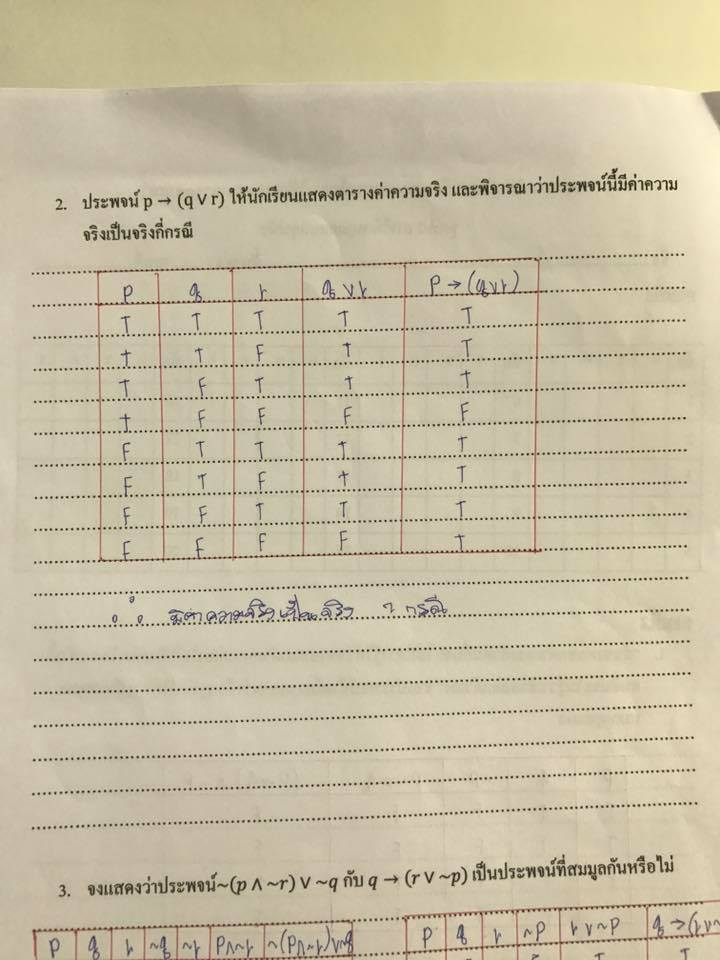 2. ประพจน์ p → (q ∨ r) ให้นักเรียนแสดงตารางค่าความจริง และพิจารณาว่าประพจน์นี้มีค่าความ
จริงเป็นจริงกี่กรณี
P q r q ∨ r P → (q ∨ r)
T T T T T
T T F T T
T F T T T
T F F F F
F T T T T
F T F T T
F F T T T
F F F F T
∴ มีค่าความจริงเป็นจริง 7 กรณี
3. จงแสดงว่าประพจน์~(p ∧ ~r) ∨ ~q กับ q → (r ∨ ~p) เป็นประพจน์ที่สมมูลกันหรือไม่
P q r ~q ~r P∧~r ~(P∧~r)∨~q P q r ~P r ∨ ~P